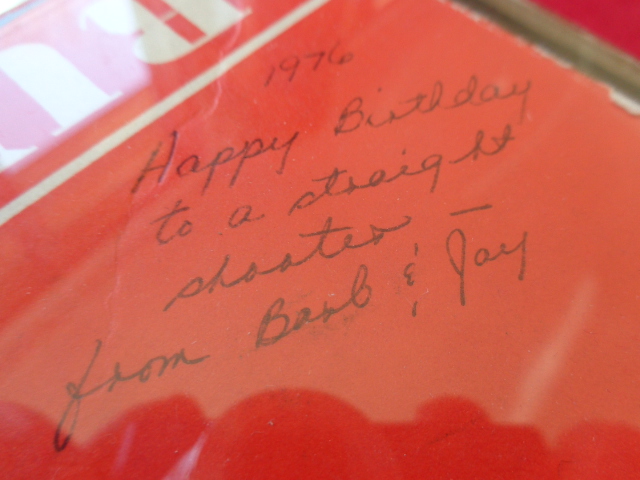 na
1976
Happy Birthday
to a straight
shooter —
from Barb & Jay